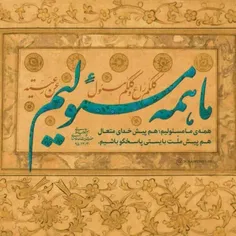 کلکم راع و کلکم مسئول عن رعیته
ما همه مسئولیم
همه‌ی ما مسئولیم؛ هم پیش خدای متعال
هم پیش ملت بایستی پاسخگو باشیم.